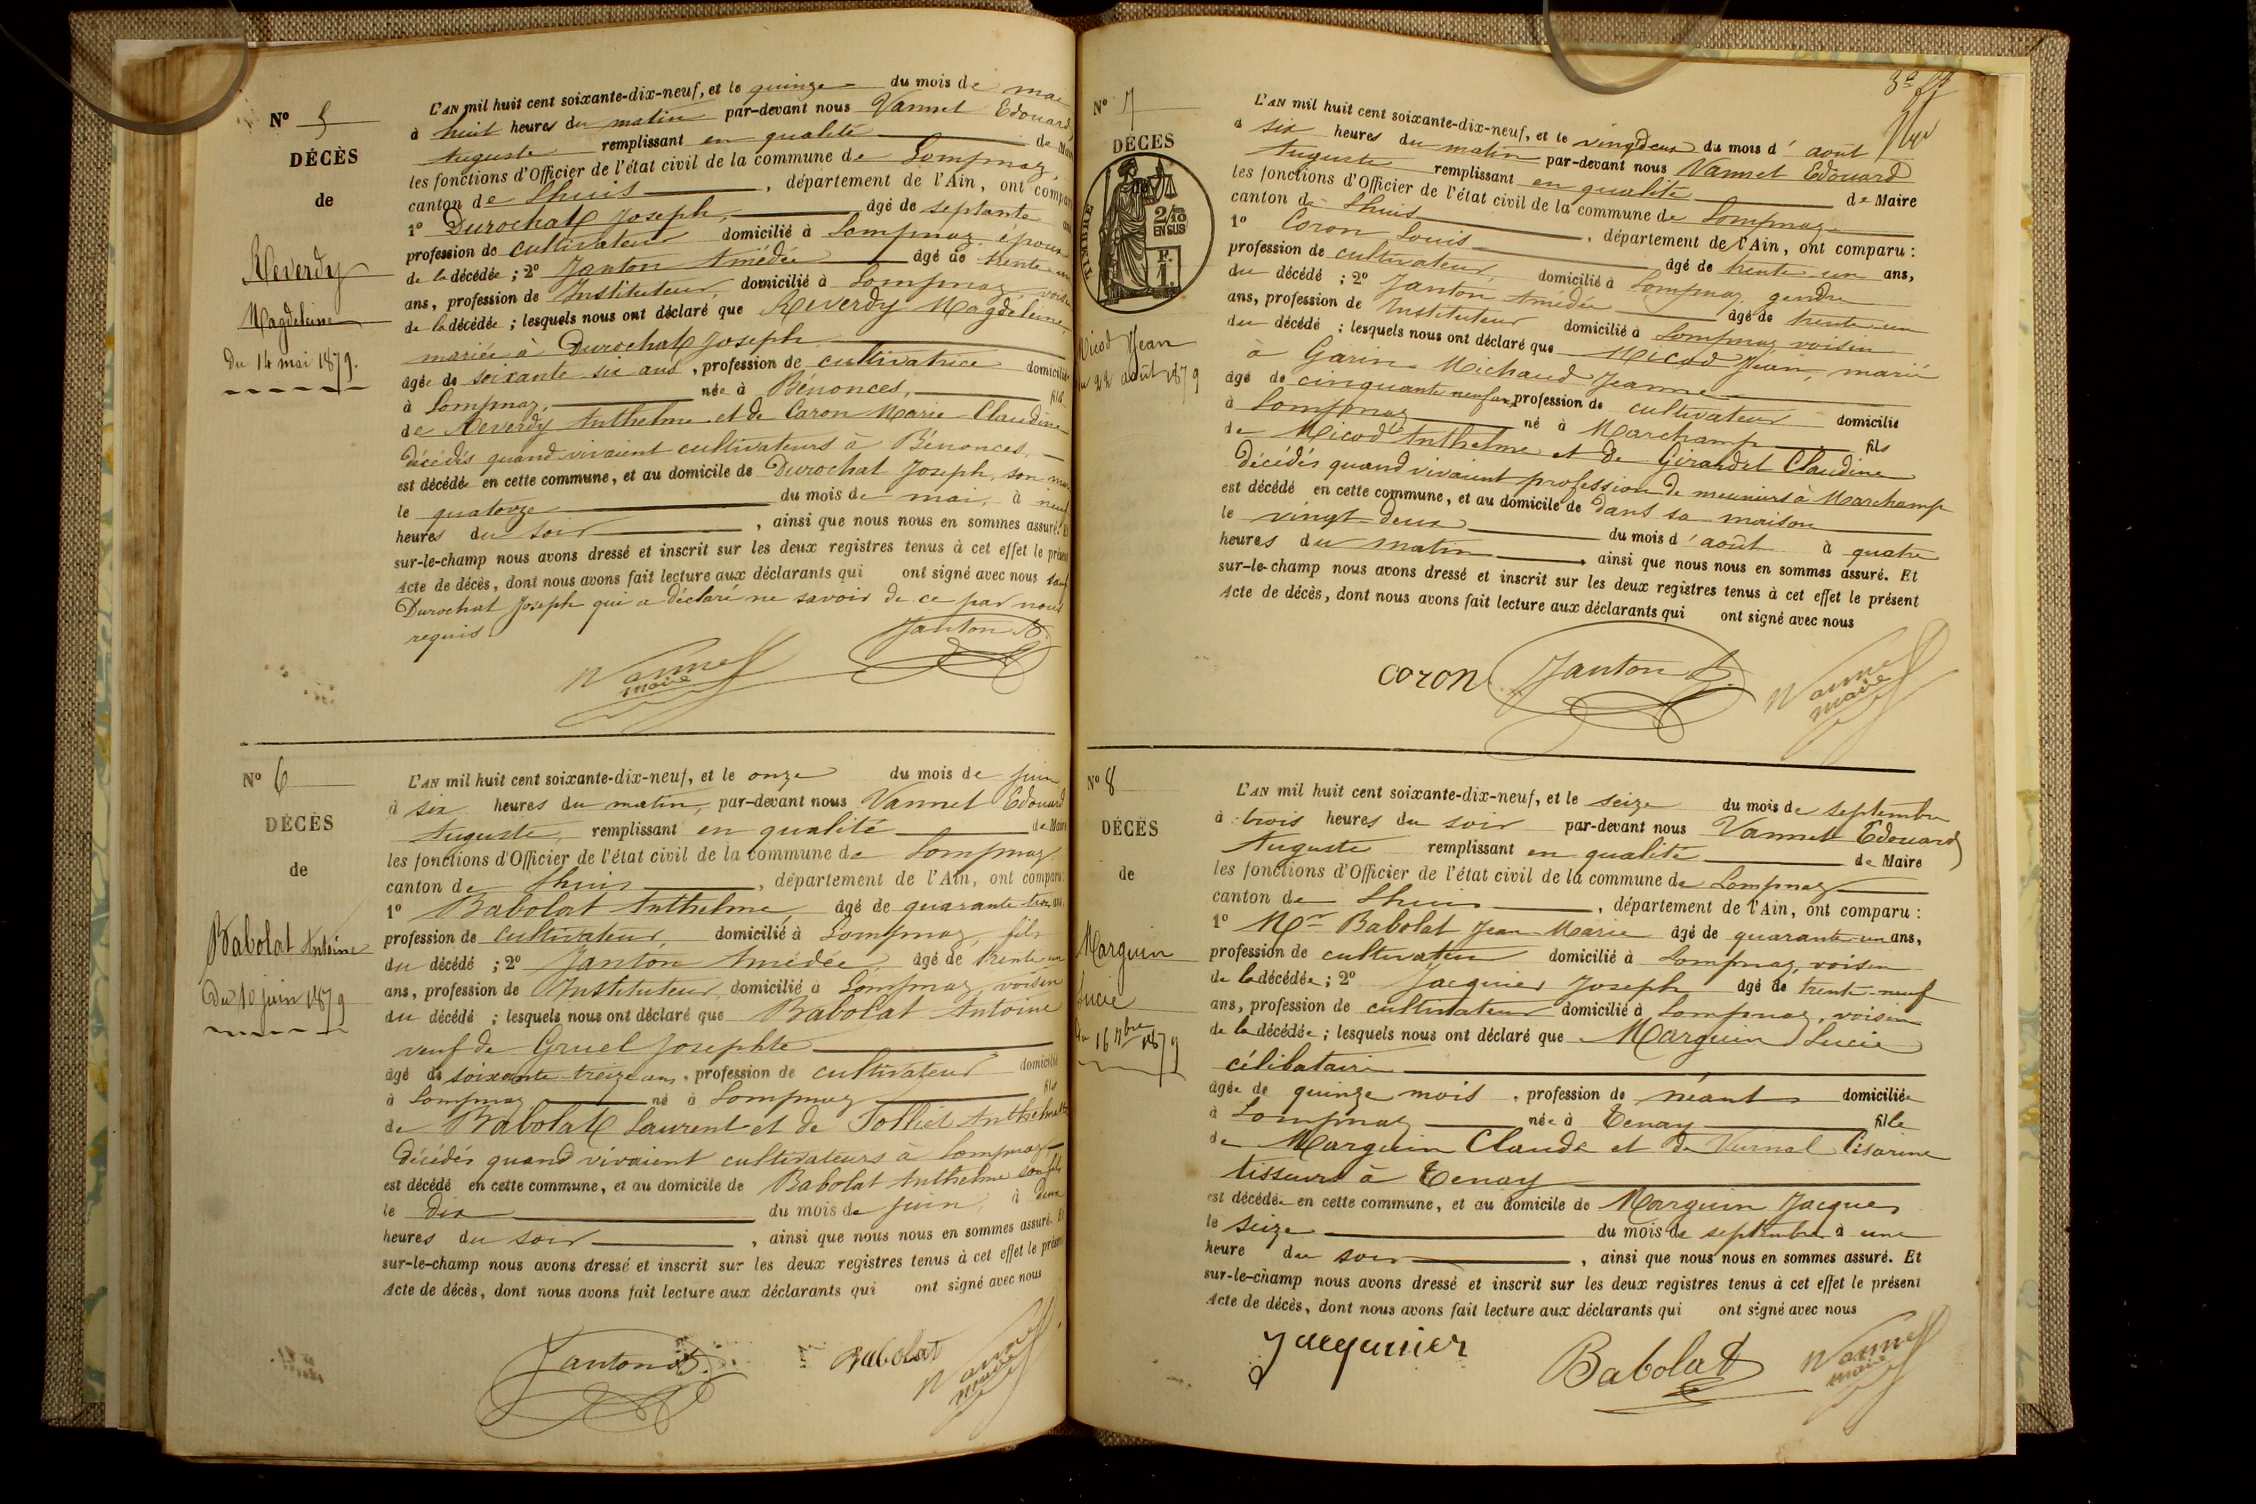 N° 5
DÉCÈS
de
Reverdy
Magdeleine
Du 14 mai 1879.
L'AN mil huit cent soixante-dix-neuf, et le quinze du mois de mai
à huit heures du matin par-devant nous Vannet Edouard
Auguste remplissant en qualité de Maire
les fonctions d'Officier de l'état civil de la commune de Lompnaz,
canton de Lhuis, département de l'Ain, ont comparu
1° Durochat Joseph, âgé de septante ans
profession de cultivateur domicilié à Lompnaz, époux
de la décédée ; 2° Janton Amédée âgé de trente-un
ans, profession de Instituteur, domicilié à Lompnaz, voisin
de la décédée ; lesquels nous ont déclaré que Reverdy Magdeleine,
mariée à Durochat Joseph
âgée de soixante six ans, profession de cultivatrice domiciliée
à Lompnaz, née à Bénonces, fille
de Reverdy Anthelme et de Caron Marie-Claudine
décédés quand vivaient cultivateurs à Bénonces,
est décédée en cette commune, et au domicile de Durochat Joseph, son mari
le quatorze du mois de mai, à neuf
heures du soir, ainsi que nous nous en sommes assuré. Et
sur-le-champ nous avons dressé et inscrit sur les deux registres tenus à cet effet le présent
Acte de décès, dont nous avons fait lecture aux déclarants qui ont signé avec nous sauf
Durochat Joseph qui a déclaré ne savoir de ce par nous
requis.
Janton A.
Vannet
maire
N° 6
DÉCÈS
de
Babolat Antoine
Du 10 juin 1879
L'AN mil huit cent soixante-dix-neuf, et le onze du mois de juin
à six heures du matin, par-devant nous Vannet Edouard
Auguste, remplissant en qualité de Maire
les fonctions d'Officier de l'état civil de la commune de Lompnaz
canton de Lhuis, département de l'Ain, ont comparu :
1° Babolat Anthelme, âgé de quarante-trois ans,
profession de cultivateur, domicilié à Lompnaz, fils
du décédé ; 2° Janton Amédée, âgé de trente-un
ans, profession de Instituteur, domicilié à Lompnaz, voisin
du décédé ; lesquels nous ont déclaré que Babolat Antoine
veuf de Gruel Josephte
âgé de soixante-treize ans, profession de cultivateur domicilié
à Lompnaz né à Lompnaz fils
de Babolat Laurent et de Tolliet Anthelmette
décédés quand vivaient cultivateurs à Lompnaz
est décédé en cette commune, et au domicile de Babolat Anthelme son fils
le dix du mois de juin, à deux
heures du soir, ainsi que nous nous en sommes assuré. Et
sur-le-champ nous avons dressé et inscrit sur les deux registres tenus à cet effet le présent
Acte de décès, dont nous avons fait lecture aux déclarants qui ont signé avec nous
Janton A. Babolat Vannet
maire
N° 7
DÉCÈS
TIMBRE
2/10
EN SUS
F.
1.
Micod Jean
du 22 août 1879
L'AN mil huit cent soixante-dix-neuf, et le vingt deux du mois d'août
à six heures du matin par-devant nous Vannet Edouard
Auguste remplissant en qualité de Maire
les fonctions d'Officier de l'état civil de la commune de Lompnaz
canton de Lhuis, département de l'Ain, ont comparu :
1° Coron Louis âgé de trente-un ans,
profession de cultivateur, domicilié à Lompnaz, gendre
du décédé ; 2° Janton Amédée âgé de trente-un
ans, profession de Instituteur domicilié à Lompnaz voisin
du décédé ; lesquels nous ont déclaré que Micod Jean, marié
à Garin-Michaud Jeanne
âgé de cinquante neuf ans, profession de cultivateur domicilié
à Lompnaz né à Marchamp fils
de Micod Anthelme et de Girardet Claudine
décédés quand vivaient profession de meuniers à Marchamp
est décédé en cette commune, et au domicile de dans sa maison
le vingt-deux du mois d'août à quatre
heures du matin, ainsi que nous nous en sommes assuré. Et
sur-le-champ nous avons dressé et inscrit sur les deux registres tenus à cet effet le présent
Acte de décès, dont nous avons fait lecture aux déclarants qui ont signé avec nous
coron Janton A. Vannet
maire
N° 8
DÉCÈS
de
Marguin
Lucie
du 16 7bre 1879
L'AN mil huit cent soixante-dix-neuf, et le seize du mois de septembre
à trois heures du soir par-devant nous Vannet Edouard
Auguste remplissant en qualité de Maire
les fonctions d'Officier de l'état civil de la commune de Lompnaz
canton de Lhuis, département de l'Ain, ont comparu :
1° Mr Babolat Jean-Marie âgé de quarante-un ans,
profession de cultivateur domicilié à Lompnaz, voisin
de la décédée ; 2° Jacquier Joseph âgé de trente-neuf
ans, profession de cultivateur domicilié à Lompnaz, voisin
de la décédée ; lesquels nous ont déclaré que Marguin Lucie
célibataire
âgée de quinze mois, profession de néant domiciliée
à Lompnaz née à Tenay fille
de Marguin Claude et de Césarine
tisseurs à Tenay
est décédée en cette commune, et au domicile de Marguin Jacques
le seize du mois de septembre à une
heure du soir, ainsi que nous nous en sommes assuré. Et
sur-le-champ nous avons dressé et inscrit sur les deux registres tenus à cet effet le présent
Acte de décès, dont nous avons fait lecture aux déclarants qui ont signé avec nous
Jacquier Babolat Vannet
maire